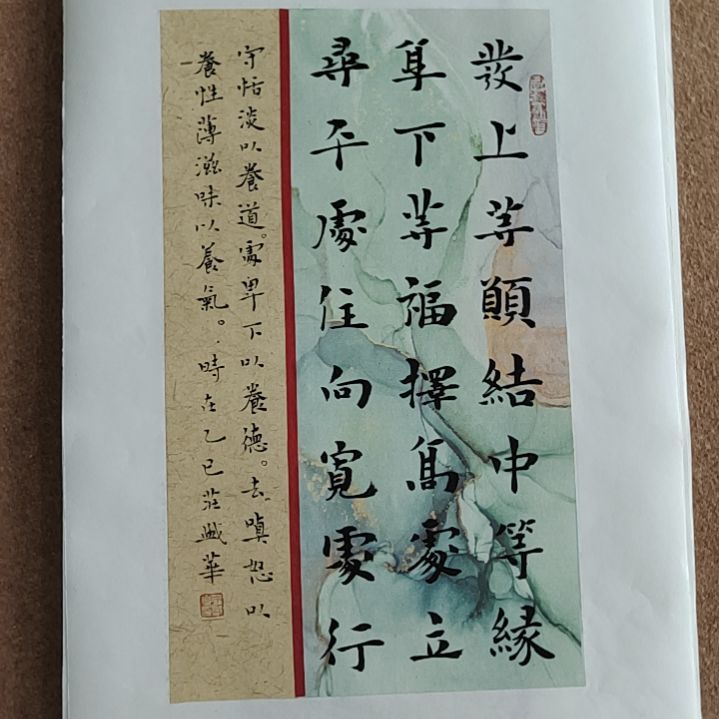 發上等願結中等緣
享下等福擇高處立
尋平處住向寬處行
守恬淡以養道。處卑下以養德。去嗔怒以
養性薄滋味以養氣。時在乙巳莊華